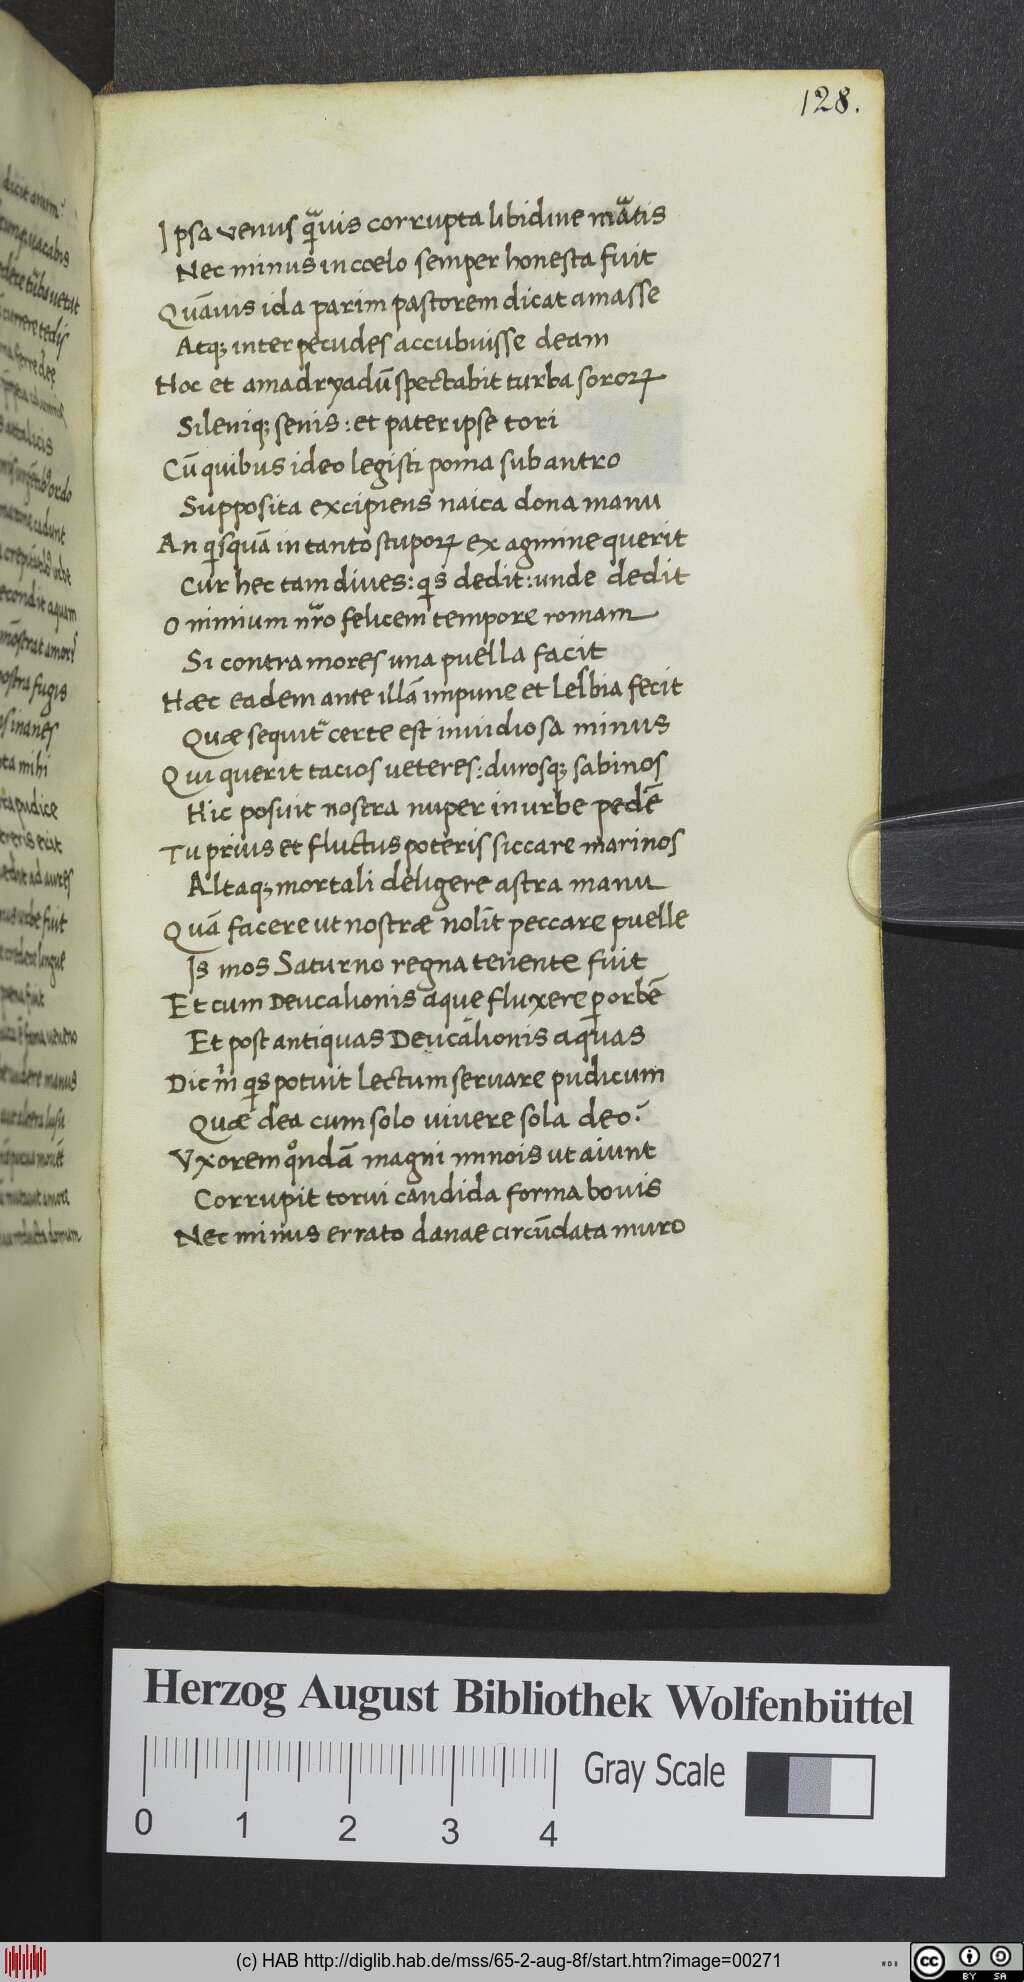 128.
Ipsa venus qᷓuis corrupta libidine mᷓatis
Nec minus in coelo semper honesta fuit
Quāuis ida parim pastorem dicat amasse
Atqꝫ inter pecudes accubuisse deam
Hoc et amadryadū spectabit turba sororꝝ
Sileniqꝫ senis : et pater ipse tori
Cū quibus ideo legisti poma sub antro
Supposita excipiens naica dona manu
An qͥsquā in tanto stuporꝝ ex agmine querit
Cur hec tam diues : qͥs dedit : unde dedit
O nimium nr̄o felicem tempore romam
Si contra mores una puella facit
Hæc eadem ante illā impune et Lesbia fecit
Quæ sequitᷓ certe est inuidiosa minus
Qui querit tacios ueteres : durosqꝫ sabinos
Hic posuit nostra nuper in urbe pedē
Tu prius et fluctus poteris siccare marinos
Altaqꝫ mortali deligere astra manu
Quā facere ut nostræ nolīt peccare puelle
Is mos Saturno regna tenente fuit
Et cum Deucalionis aque fluxere ꝑ orbē
Et post antiquas Deucalionis aquas
Dic m̄ qͥs potuit lectum seruare pudicum
Quæ dea cum solo uiuere sola deo?
Vxorem qͦndā magni minois ut aiunt
Corrupit torui candida forma bouis
Nec minus errato danae circūdata muro
Herzog August Bibliothek Wolfenbüttel
Gray Scale
0 1 2 3 4
(c) HAB http://diglib.hab.de/mss/65-2-aug-8f/start.htm?image=00271
cc BY SA